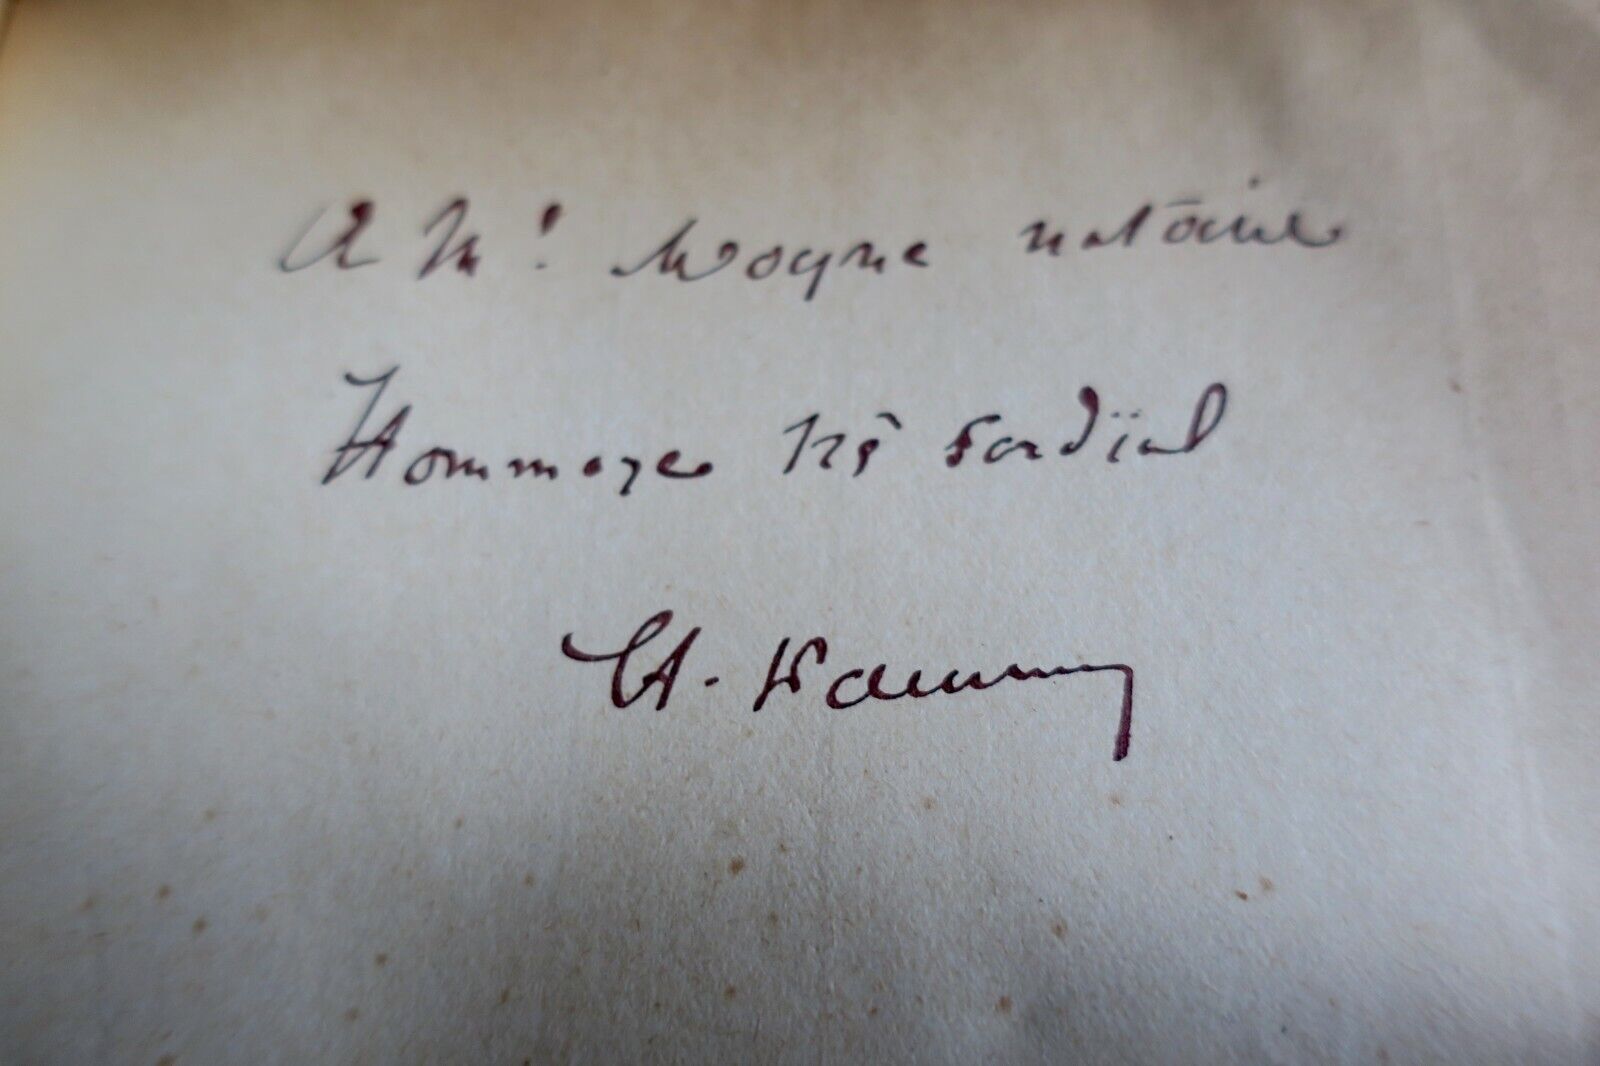 A Mr. Moyne notaire
Hommage très cordial